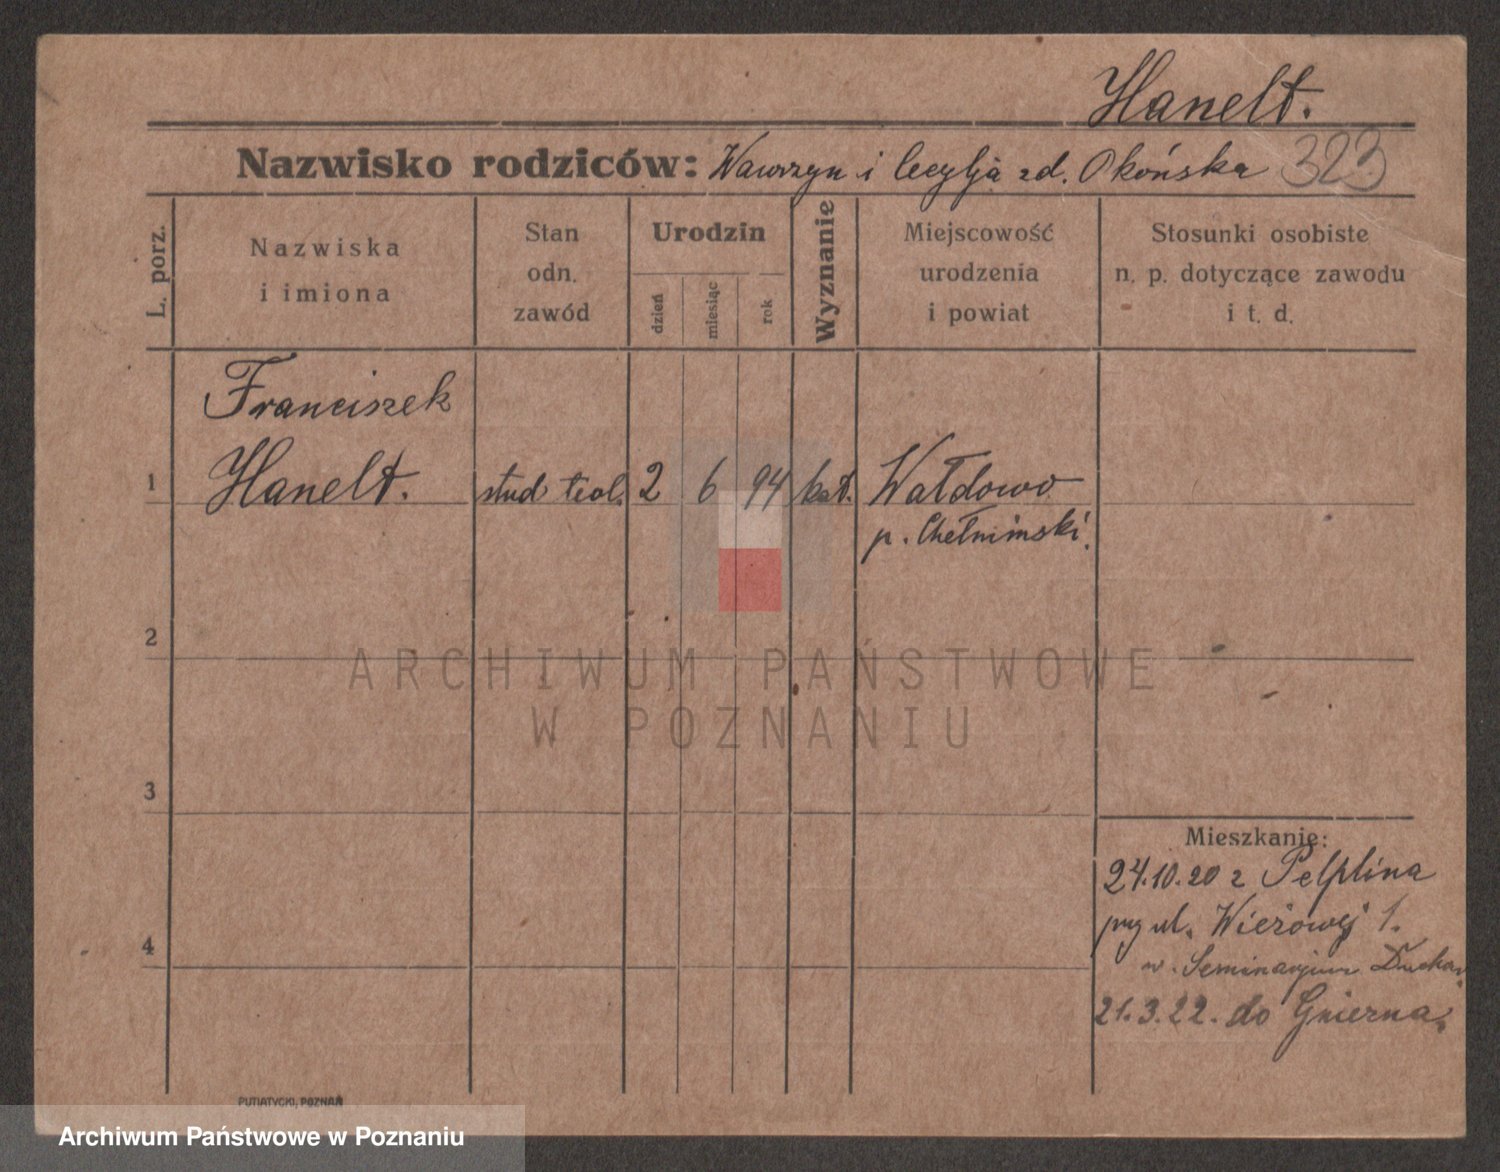 Hanelt.
Nazwisko rodziców: Wawrzyn i Cecylja zd. Okońska 323
L. porz.
Nazwiska
i imiona
Stan
odn.
zawód
Urodzin
dzień
miesiąc
rok
Wyznanie
Miejscowość
urodzenia
i powiat
Stosunki osobiste
n. p. dotyczące zawodu
i t. d.
Franciszek
1 Hanelt. stud teol. 2 6 94 kat. Wałdowo
p. Chełmiński.
2
ARCHIWUM PAŃSTWOWE
W POZNANIU
3
Mieszkanie:
24.10.20 z Pelplina
przy ul. Wieżowej 1.
4
w. Seminarjum Duchow.
21.3.22. do Gniezna.
PUTIATYCKI, POZNAŃ
Archiwum Państwowe w Poznaniu